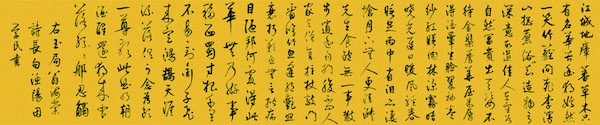 江城地瘴蕃草木只
有名花苦幽独嫣然
一笑竹籬間桃李漫
山總麤俗也知造物有
深意故遣佳人在空谷
自然富貴出天姿不
待金盤薦華屋朱唇
得酒暈生臉翠袖卷
紗紅映肉林深霧暗
曉光遲日暖風輕春
睡足雨中有淚亦悽
愴月下無人更清淑
先生食飽無一事散
步逍遙自捫腹不問人
家與僧舍拄杖敲門
看修竹忽逢絕艷照
衰朽歎息無言揩病
目陋邦何處得此
華無乃好事
移西蜀寸根千里
不易到銜子飛
來定鴻鵠天涯
流落俱可念為飲
一尊歌此曲明朝
酒醒還獨來雪
落紛紛那忍觸
右玉局翁海棠
詩長句漁陽田
學民書